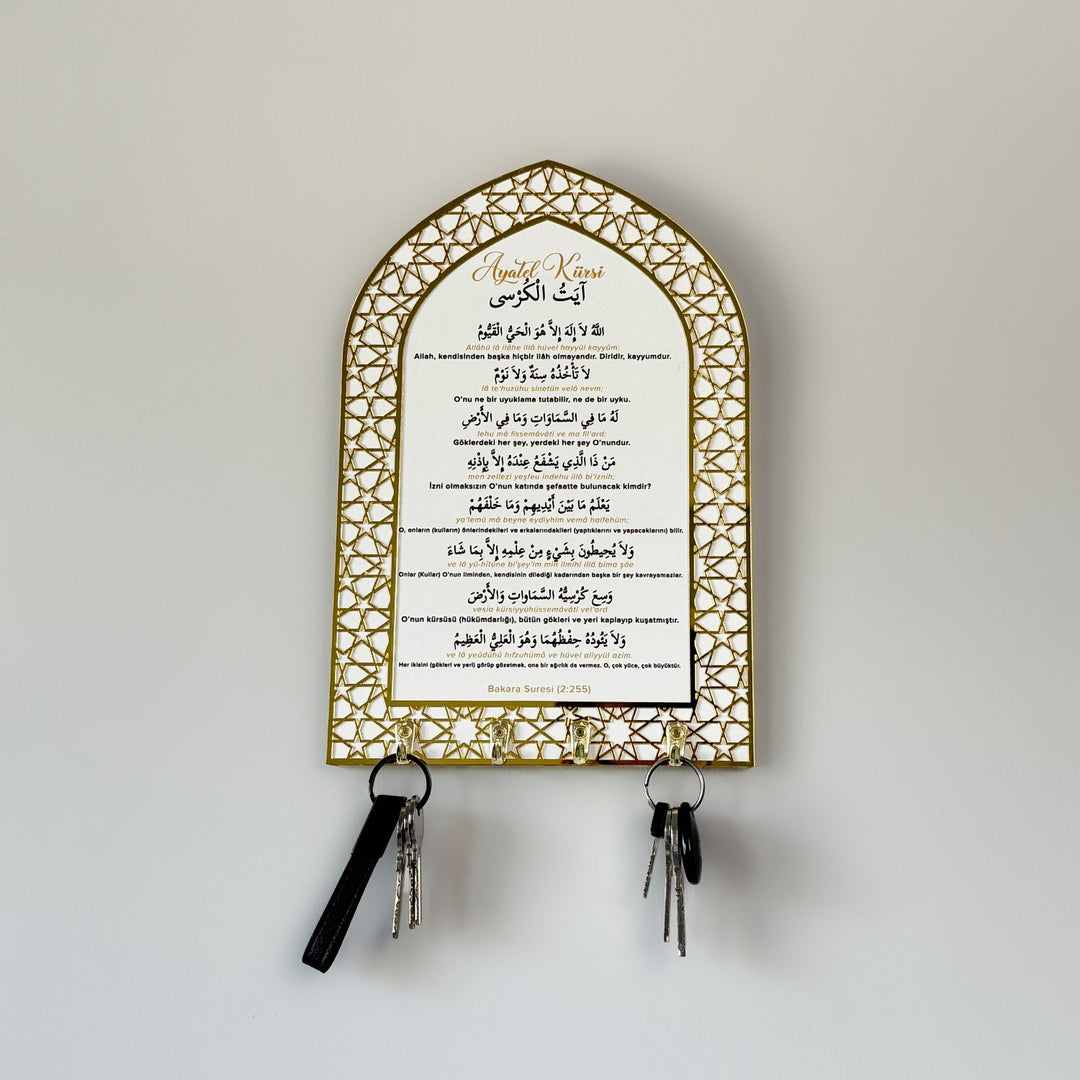 Ayatel Kürsi
آيَتُ الْكُرْسى
اللَّهُ لاَ إِلَهَ إِلاَّ هُوَ الْحَيُّ الْقَيُّومُ
Allâhü lâ ilâhe illâ hüvel hayyül kayyûm;
Allah, kendisinden başka hiçbir ilâh olmayandır. Diridir, kayyumdur.
لاَ تَأْخُذُهُ سِنَةٌ وَلاَ نَوْمٌ
lâ te'huzühu sinetün velâ nevm;
O'nu ne bir uyuklama tutabilir, ne de bir uyku.
لَهُ مَا فِي السَّمَاوَاتِ وَمَا فِي الأَرْضِ
lehu mâ fissemâvâti ve ma fil'ard;
Göklerdeki her şey, yerdeki her şey O'nundur.
مَنْ ذَا الَّذِي يَشْفَعُ عِنْدَهُ إِلاَّ بِإِذْنِهِ
men zellezi yeşfeu indehu illâ bi'iznih;
İzni olmaksızın O'nun katında şefaatte bulunacak kimdir?
يَعْلَمُ مَا بَيْنَ أَيْدِيهِمْ وَمَا خَلْفَهُمْ
ya'lemü mâ beyne eydiyhim vemâ halfehüm;
O, onların (kulların) önlerindekileri ve arkalarındakileri (yaptıklarını ve yapacaklarını) bilir.
وَلاَ يُحِيطُونَ بِشَيْءٍ مِنْ عِلْمِهِ إِلاَّ بِمَا شَاءَ
ve lâ yü-hîtune bi'şey'im min ilmihî illâ bima şâe
Onlar (Kullar) O'nun ilminden, kendisinin dilediği kadarından başka bir şey kavrayamazlar.
وَسِعَ كُرْسِيُّهُ السَّمَاوَاتِ وَالأَرْضَ
vesia kürsiyyühüssemâvâti vel'ard
O'nun kürsüsü (hükümdarlığı), bütün gökleri ve yeri kaplayıp kuşatmıştır.
وَلاَ يَئُودُهُ حِفْظُهُمَا وَهُوَ الْعَلِيُّ الْعَظِيمُ
ve lâ yeûdühû hıfzuhümâ ve hüvel aliyyül azim.
Her ikisini (gökleri ve yeri) görüp gözetmek, ona bir ağırlık da vermez. O, çok yüce, çok büyüktür.
Bakara Suresi (2:255)